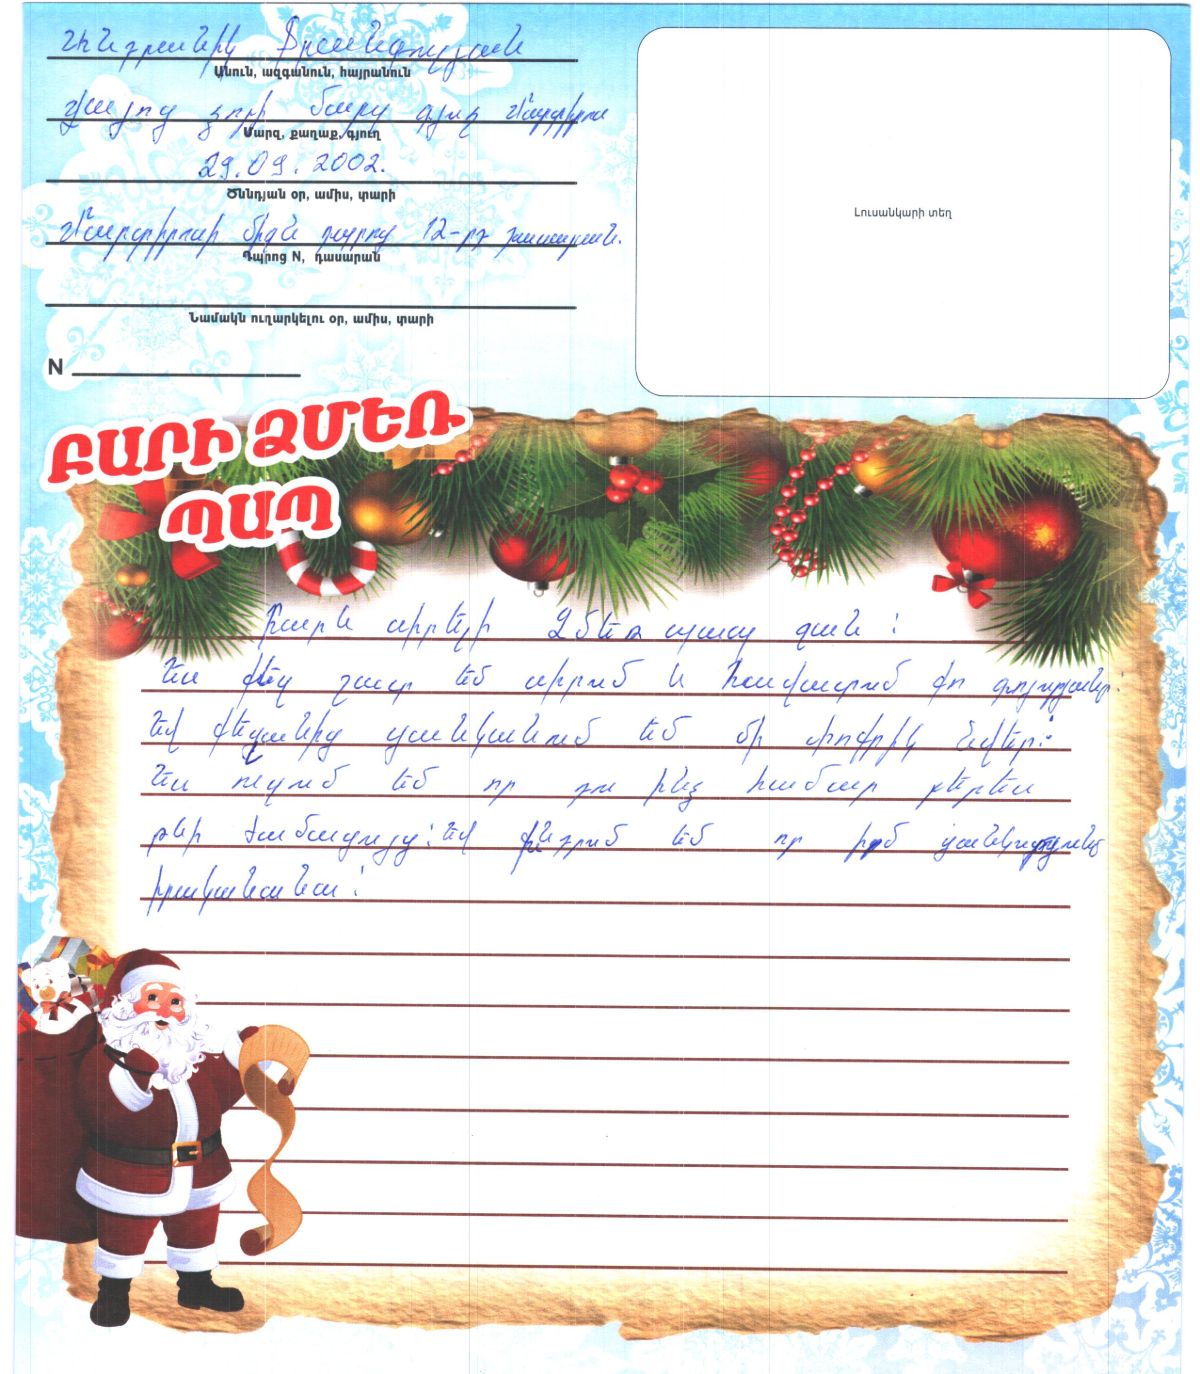 Անդրանիկ Ֆրանգուլյան
Անուն, ազգանուն, հայրանուն
Վայոց ձորի մարզ գյուղ Մարտիրոս
Մարզ, քաղաք, գյուղ
29.09.2002.
Ծննդյան օր, ամիս, տարի
Մարտիրոսի միջն դպրոց 12-րդ դասարան.
Դպրոց N, դասարան
Նամակն ուղարկելու օր, ամիս, տարի
N
Լուսանկարի տեղ
ԲԱՐԻ ՁՄԵՌ
ՊԱՊ
Բարև սիրելի Ձմեռ պապ ջան:
Ես քեզ շատ եմ սիրում և հավատում քո գոյությանը:
Եվ քեզանից ցանկանում եմ մի փոքրիկ նվեր:
Ես ուզում եմ որ դու ինձ համար բերես
թևի ժամացույց: Եվ խնդրում եմ որ իմ ցանկությունը
իրականանա: